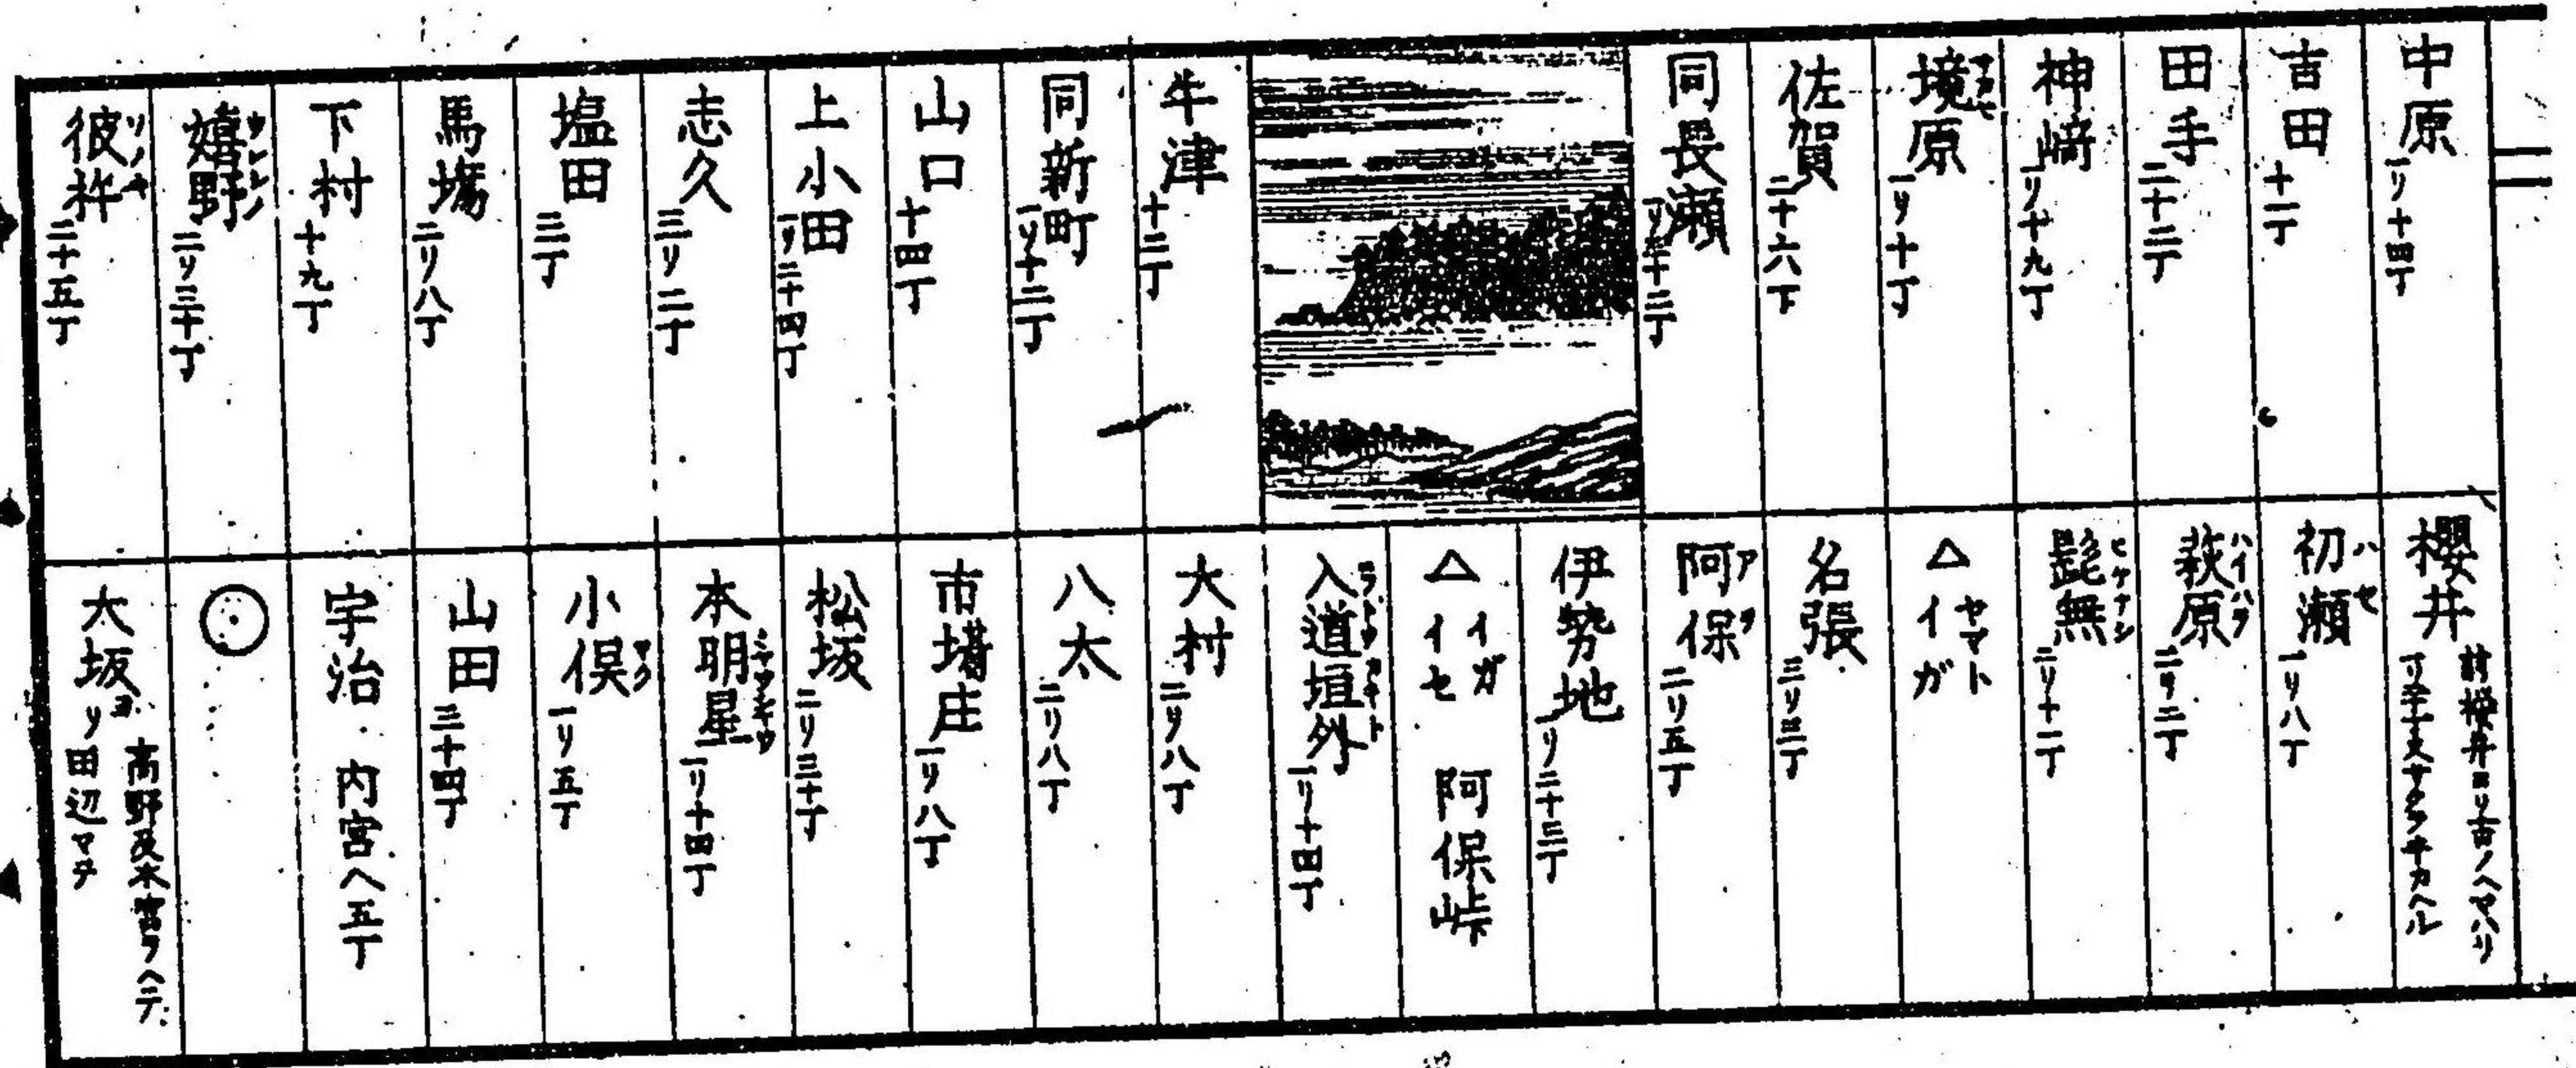 二
中原 一リ十四丁
吉田 十二丁
田手 二十二丁
神﨑 一リ十九丁
境原 一リ十丁
佐賀 二十六丁
同長瀬
牛津 十二丁
同新町 一リ十二丁
山口 十四丁
上小田 一リ二十四丁
志久 三リ二丁
塩田 三丁
馬場 二リ八丁
下村 十九丁
嬉野 ウレシノ 二リ三十丁
彼杵 二十五丁
櫻井
初瀬 ハセ 一リ八丁
萩原 ハイハラ 二リ二丁
髭無 ヒゲナシ 二リ十二丁
△ ヤマト イガ
名張 三リ三丁
阿保 アヲ 二リ五丁
伊勢地 一リ二十三丁
△ イガ イセ 阿保峠
入道垣外 一リ十四丁
大村 二リ八丁
八太 二リ八丁
市塲庄 一リ八丁
松坂 二リ三十丁
本明星 ミヤウジヤウ 一リ十四丁
小俣 マタ 一リ五丁
山田 三十四丁
宇治 内宮へ五丁
大坂ヨリ 高野及本宮ヲヘテ 田辺マテ